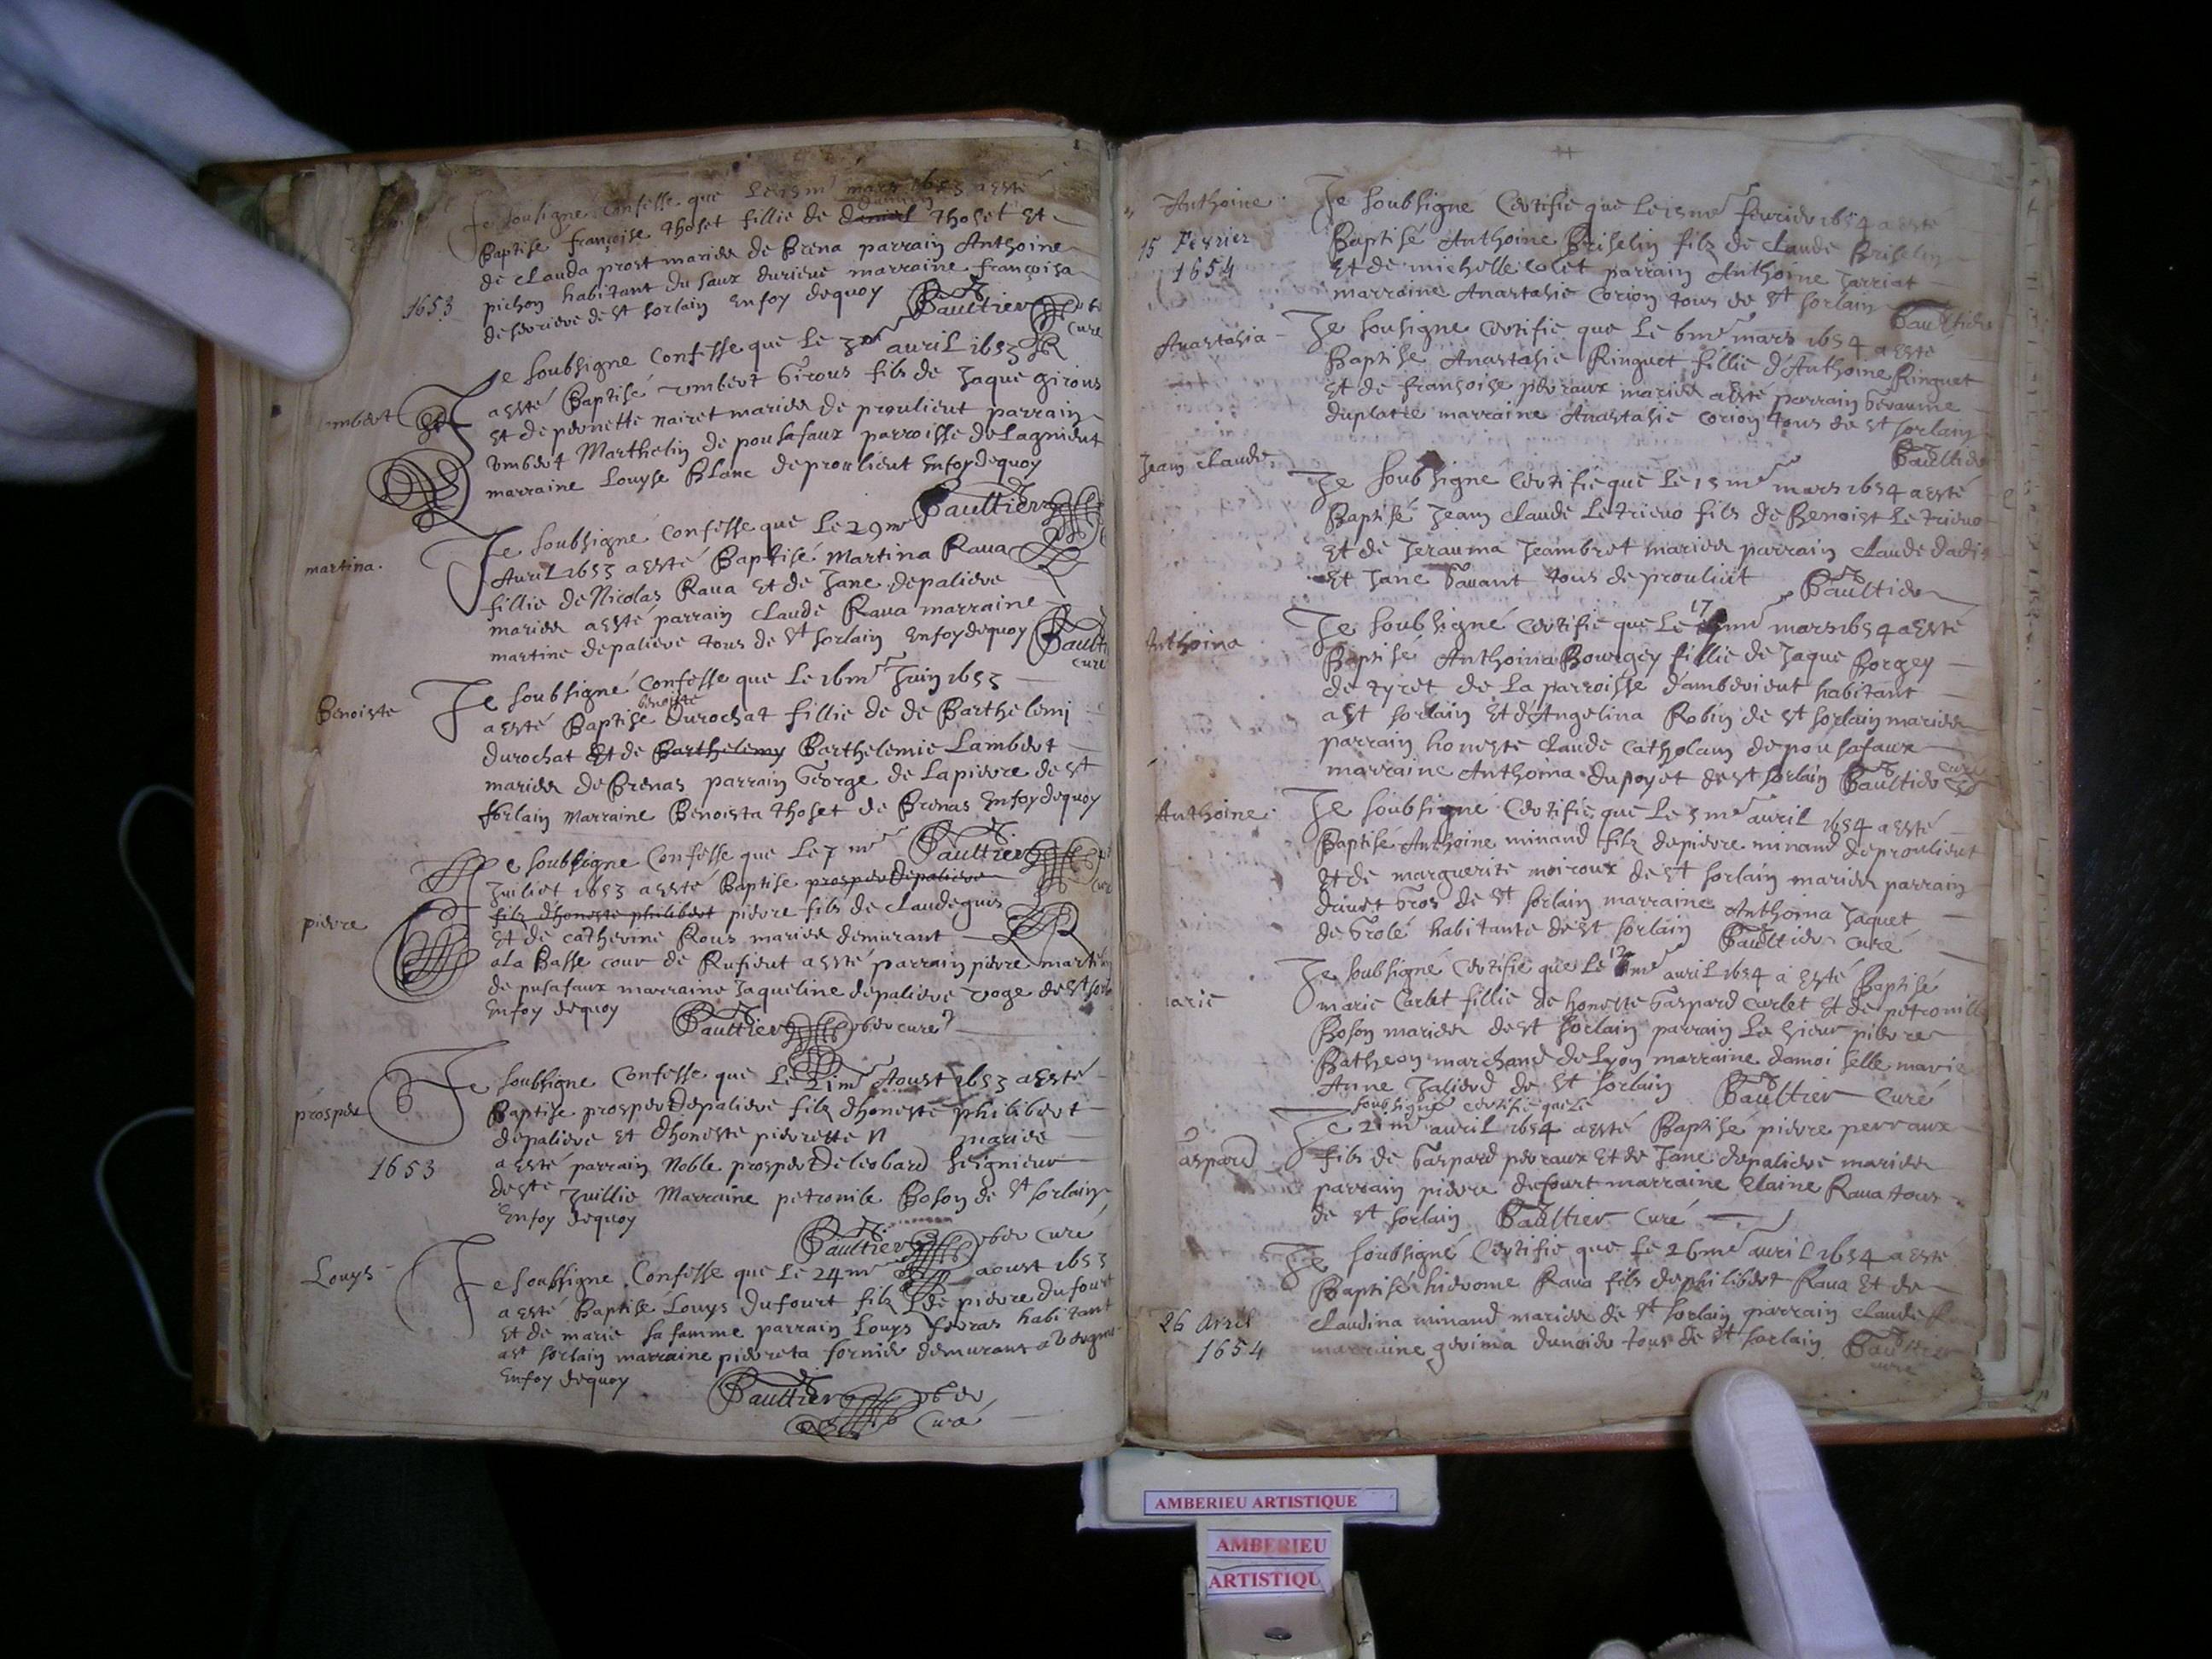 Je sousigné Confesse que Le 15me mars 1653 a esté
Baptise françoise Thoset fillie de Thoset Et
de Clauda prost mariés de Brena parrain Anthoine
pichon habitant du saux marraine françoisa
1653
de st sorlain Enfoy dequoy Baultier
Cure
Je soubsigne Confesse que Le 3me auril 1653
umbert
a esté Baptisé umbert Girous fils de Jaque girous
Et de pernette nairet mariés de proulieut parrain
umbert Marthelin de pousafaux parroisse de Lagnieut
marraine Louyse Blanc de proulieut Enfoy dequoy
Baultier
martina.
Je soubsigné Confesse que Le 29me
Auril 1653 a esté Baptisé Martina Raua
fillie de Nicolas Raua Et de Jane depaliere
mariés a esté parrain Claude Raua marraine
martine depaliere tous de st sorlain Enfoy dequoy Baulti
cure
Benoiste
Je soubsigné Confesse que Le 16me Juin 1653
benoiste
a esté Baptise durochat fillie de de Barthelemi
durochat Et de Barthelemy Barthelemie Lambert
mariés de Brenas parrain George de Lapierre de st
sorlain Marraine Benoista Thoset de Brenas Enfoy dequoy
Baultier
Je soubsigne Confesse que Le 7me
Juillet 1653 a esté Baptise prosper depaliere
pierre
filz dhoneste philibert pierre fils de Claude guis
Et de Catherine Rous mariés demurant
a La Basse cour de Rufieut a esté parrain pierre marti
de pusafaux marraine Jaqueline depaliere voge de st sorl
Enfoy dequoy Baultier cure
prosper
Je soubsigne Confesse que Le 21me Aoust 1653 a esté
Baptise prosper Depaliere filz dhoneste philibert
depaliere et dhoneste pierrette N mariés
1653
a esté parrain Noble prosper Deleobard seignieur
deste Juillie Marraine petronile Boson de st sorlain
Enfoy dequoy
Baultier cure
Louys
Je soubsigne Confesse que Le 24me aoust 1653
a esté Baptisé Louys dufourt filz de pierre dufourt
Et de marie sa famme parrain Louys ferras habitant
a st sorlain marraine pierreta fornier demurant a
Enfoy dequoy
Baultier
Curé
Anthoine
15 Fevrier
1654
Je soubsigné Certifie que Le 15me feurier 1654 a esté
Baptisé Anthoine Briselin filz de Claude Briselin
Et de michelle Colet parrain Anthoine Jarriat
marraine Anastasie Corion tous de st sorlain
Baultier
Anastasia
Je sousigne Certifie que Le 6me mars 1654 a esté
Baptise Anastasie Ringuet fillie d'Anthoine Ringuet
Et de françoise perraux mariés a esté parrain Geraume
duplatre marraine Anastasie Corion tous de st sorlain
Baultier
Jean Claude
Je soubsigne Certifie que Le 15me mars 1654 a esté
Baptisé Jean Claude Letrieuo fils de Benoist Letrieuo
Et de Jerauma Jeambret mariés parrain Claude
Et Jane Sauant tous de proulieut Baultier
Anthoina
17
Je soubsigné Certifie que Le me mars 1654 a esté
Baptisé Anthoina Bourgey fillie de Jaque Borgey
de tyret de La parroisse d'amberieut habitant
a st sorlain Et d'Angelina Robin de st sorlain mariés
parrain honeste Claude Catholain de pousafaux
marraine Anthoina dupoyet de st sorlain Baultier cure
Anthoine
Je soubsigné Certifie que Le 5me auril 1654 a esté
Baptisé Anthoine minand filz de pierre minand de proulieut
Et de marguerite moiroux de st sorlain mariés parrain
Gros de st sorlain marraine Anthoina Jaquet
de Grolé habitante de st sorlain Baultier Curé
12
Je soubsigné Certifie que Le me auril 1654 a esté Baptisé
arie
marie Carlet fillie de honeste Gaspard Curlet Et de petronille
Boson mariés de st sorlain parrain Le sieur pierre
Batheon marchand de Lyon marraine damoiselle marie
Anne Jalierd de st sorlain Baultier Curé
soubsigné certifie que Le
Je 21me auril 1654 a esté Baptisé pierre perraux
aspard
fils de Gaspard peraux Et de Jane depaliere mariés
parrain pierre defourt marraine Claine Raua tous
de st sorlain Baultier Curé
Je soubsigné Certifie que Le 26me auril 1654 a esté
Baptisé hierome Raua fils de philibert Raua Et de
26 Avril
1654
Claudina minand mariés de st sorlain parrain Claude
marraine gerima dunoier tous de st sorlain Baultier
cure
AMBERIEU ARTISTIQUE
AMBERIEU
ARTISTIQU